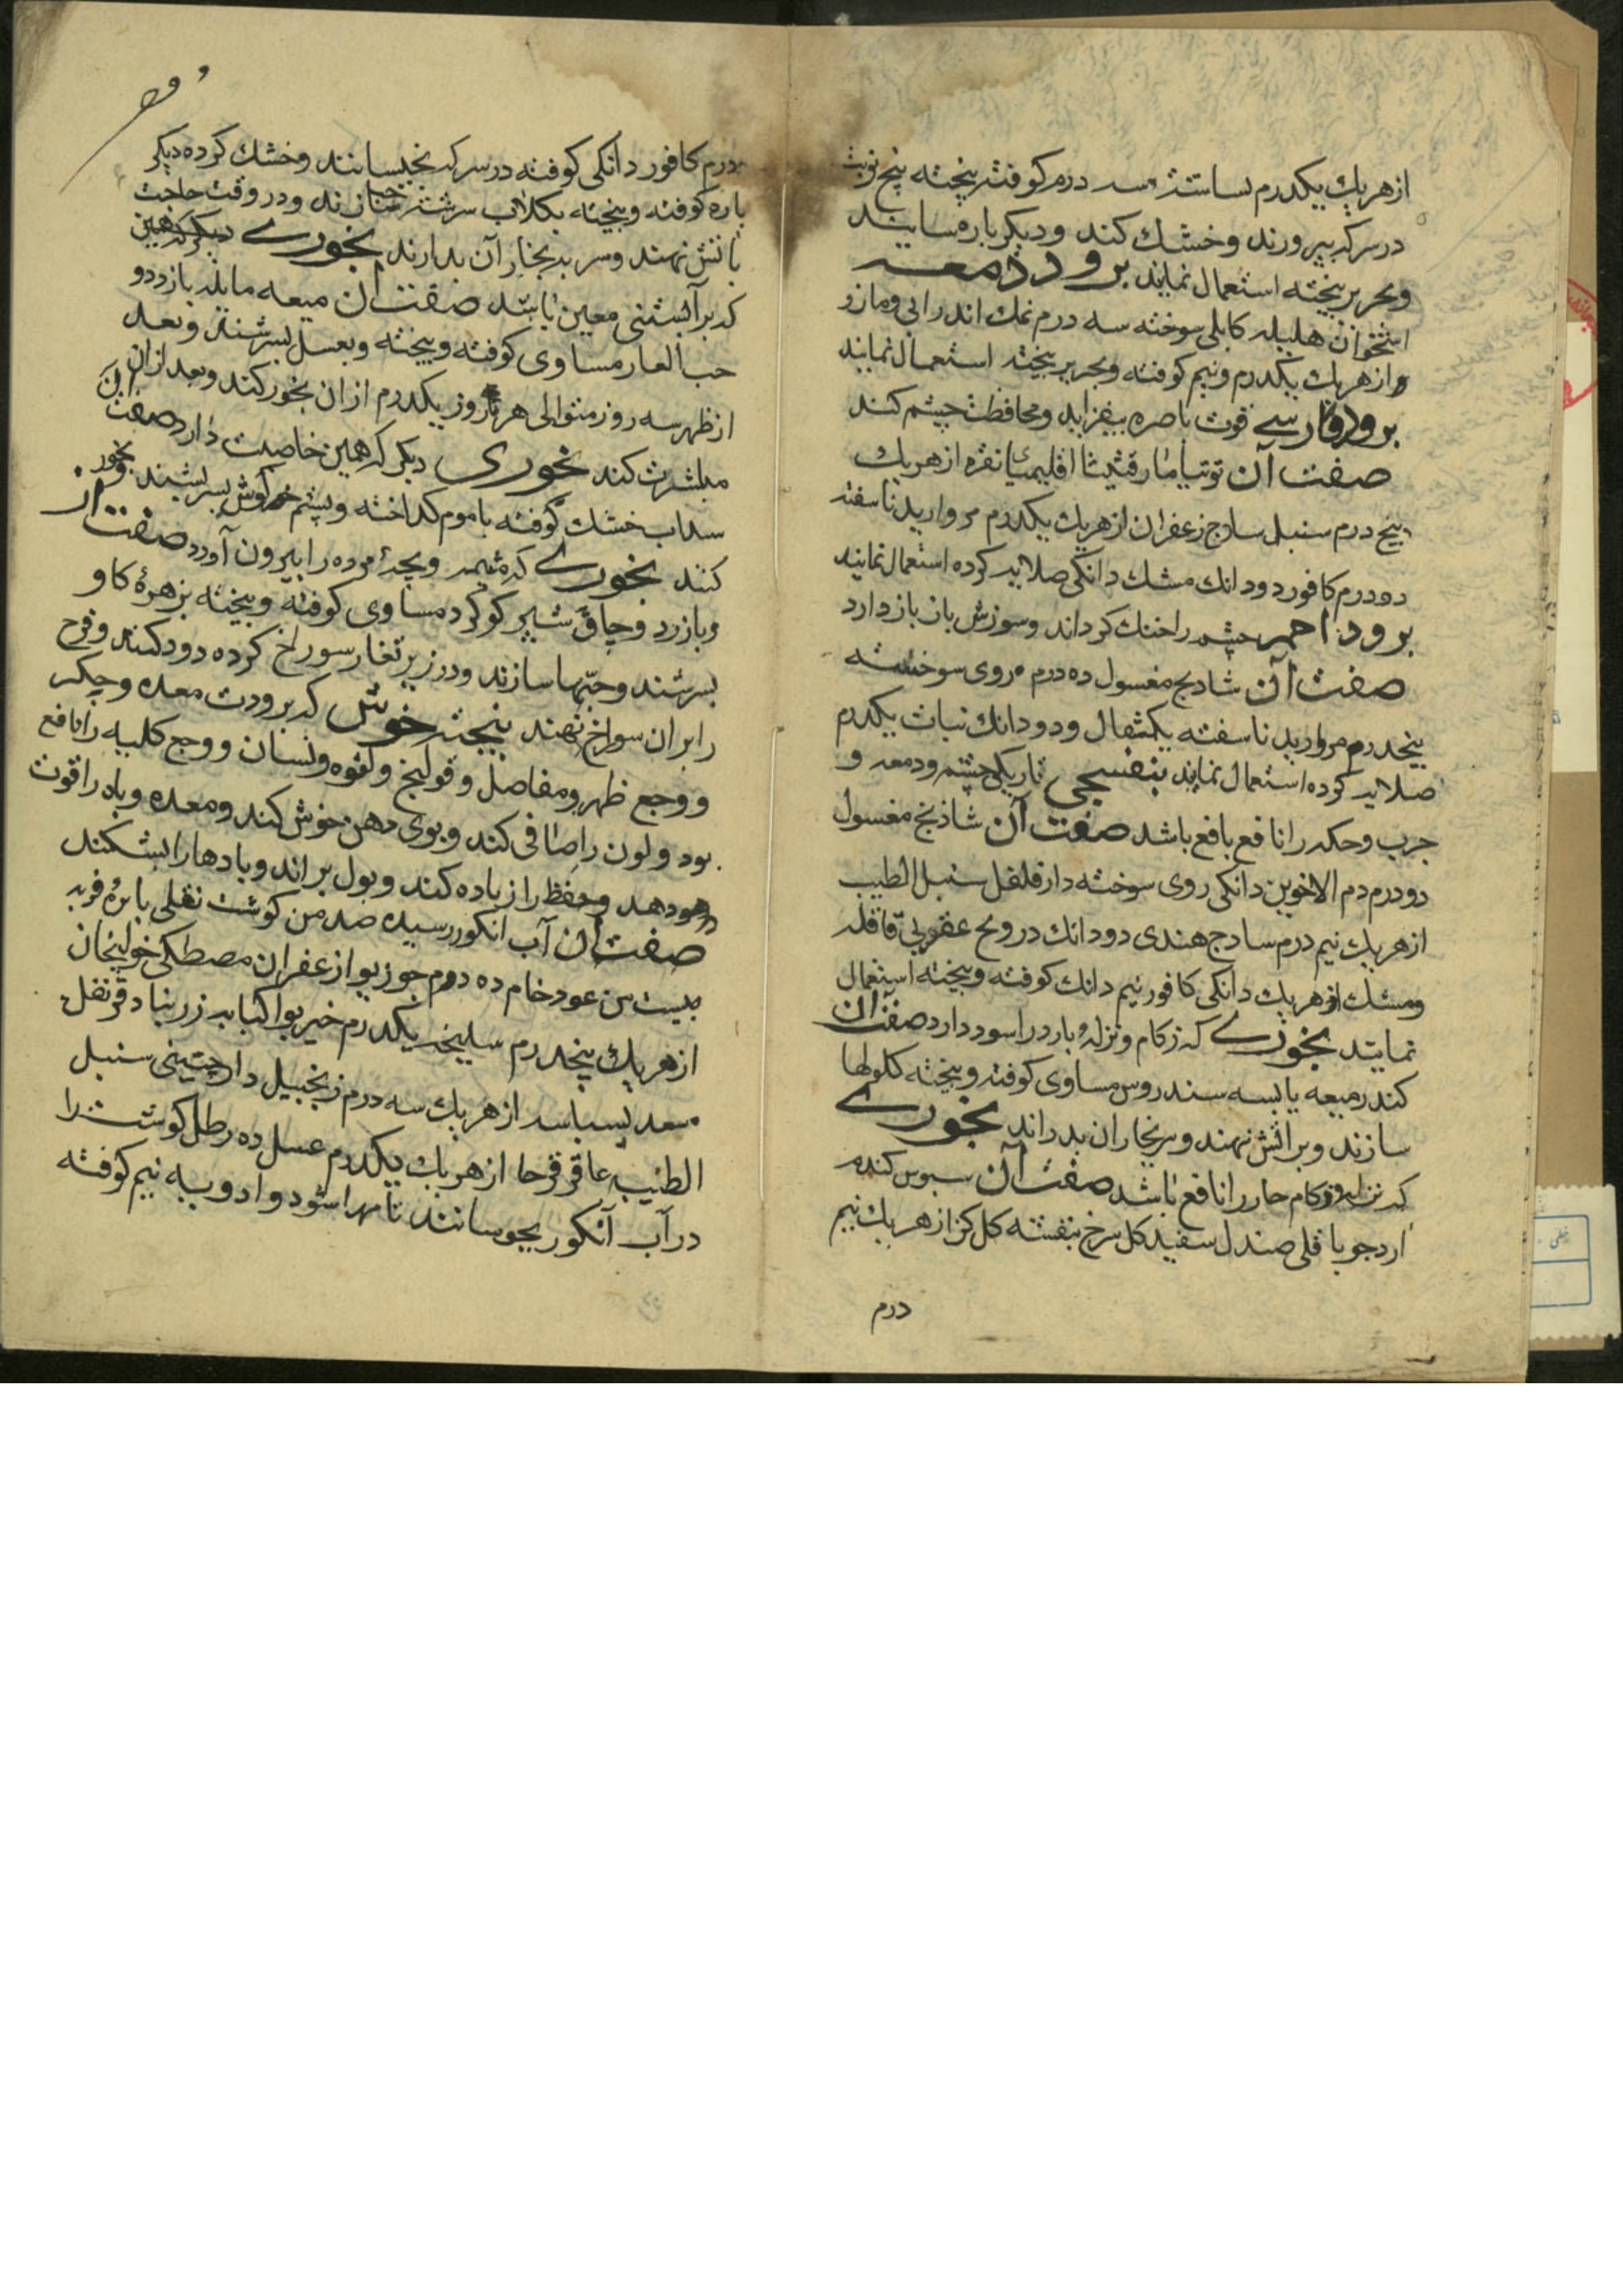 از هر یك یكدرم بساسته سه درم كوفته بیخته پنج نوبت
در سركه بپرورند و خشك كنند و دیكر باره بسایند
و بحریر بیخته استعمال نمایند برود دمعه
استخوان هلیله كابلی سوخته سه درم نمك اندرانی و مازو
از هر یك یكدرم و نیم كوفته و بحریر بیخته استعمال نمایند
برود فارسی قوت باصره بیفزاید و محافظت چشم كند
صفت آن توتیا مارقشیثا اقلیمیا نقره از هر یك
پنج درم سنبل سادج زعفران از هر یك یكدرم مروارید ناسفته
دو درم كافور دو دانك مشك دانكی صلایه كرده استعمال نمایند
برود احمر چشم را خنك كرداند و سوزش باز دارد
صفت آن شادنج مغسول ده درم روی سوخته
پنجدرم مروارید ناسفته یكمثقال و دو دانك نبات یكدرم
صلایه كرده استعمال نمایند بنفسجی تاریكی چشم و دمعه و
جرب و حكه را نافع باشد صفت آن شادنج مغسول
دو درم دم الاخوین دانكی روی سوخته دارفلفل سنبل الطیب
از هر یك نیم درم سادج هندی دو دانك درونج عقربی قاقله
و مشك از هر یك دانكی كافور نیم دانك كوفته و بیخته استعمال
نمایند بخوری كه زكام و نزله بارد را سود دارد صفت آن
كندر میعه یابسه سندروس مساوی كوفته و بیخته كلولها
سازند و بر آتش نهند و سر بخار آن بدارند بخوری
كه نزله و زكام حار را نافع باشد صفت آن سبوس كندم
آرد جو باقلی صندل سفید كل سرخ بنفشه كل كز از هر یك نیم
درم
درم كافور دانكی كوفته در سركه بخیسانند و خشك كرده دیكر
باره كوفته و بیخته بكلاب سرشته حب سازند و در وقت حاجت
بآتش نهند و سر به بخار آن بدارند بخوری دیكر كه همین
كه بر آبستنی معین باشد صفت آن میعه سایله بازد دو
حب الغار مساوی كوفته و بیخته و بعسل بسرشند و بعد
از ظهر سه روز متوالی هر روز یكدرم از آن بخور كنند و بعد از آن
مباشرت كنند بخوری دیكر كه همین خاصیت دارد صفت آن
سداب خشك كوفته با موم كداخته و پشم خركوش بسرشند و بخور
كنند بخوری كه مشیمه و بچۀ مرده را بیرون آورد صفت آن
بازرد و جاوشیر كوكرد مساوی كوفته و بیخته بزهرۀ كاو
بسرشند و حبّها سازند و در زیر تغار سوراخ كرده دود كنند و فرج
را بر آن سوراخ نهند پیچه خوش كه برودت معده و جكر
و وجع ظهر و مفاصل و قولنج و لقوه و نسیان و وجع كلیه را نافع
بود و لون را صافی كند و بوی دهن خوش كند و معده و باه را قوت
دهد و حفظ را زیاده كند و بول براند و بادها را بشكند
صفت آن آب انكور رسیده صد من كوشت نقلی یا برۀ فربه
بیست من عود خام ده درم جوزبوا زعفران مصطكی خولنجان
از هر یك پنجدرم سلیخه یكدرم خیربوا كبابه زرنباد قرنفل
سعد بسباسه از هر یك سه درم زنجبیل دارچینی سنبل
الطیب عاقرقرحا از هر یك یكدرم عسل ده رطل كوشت را
در آب انكور بجوشانند تا مهرا شود و ادویه نیم كوفته